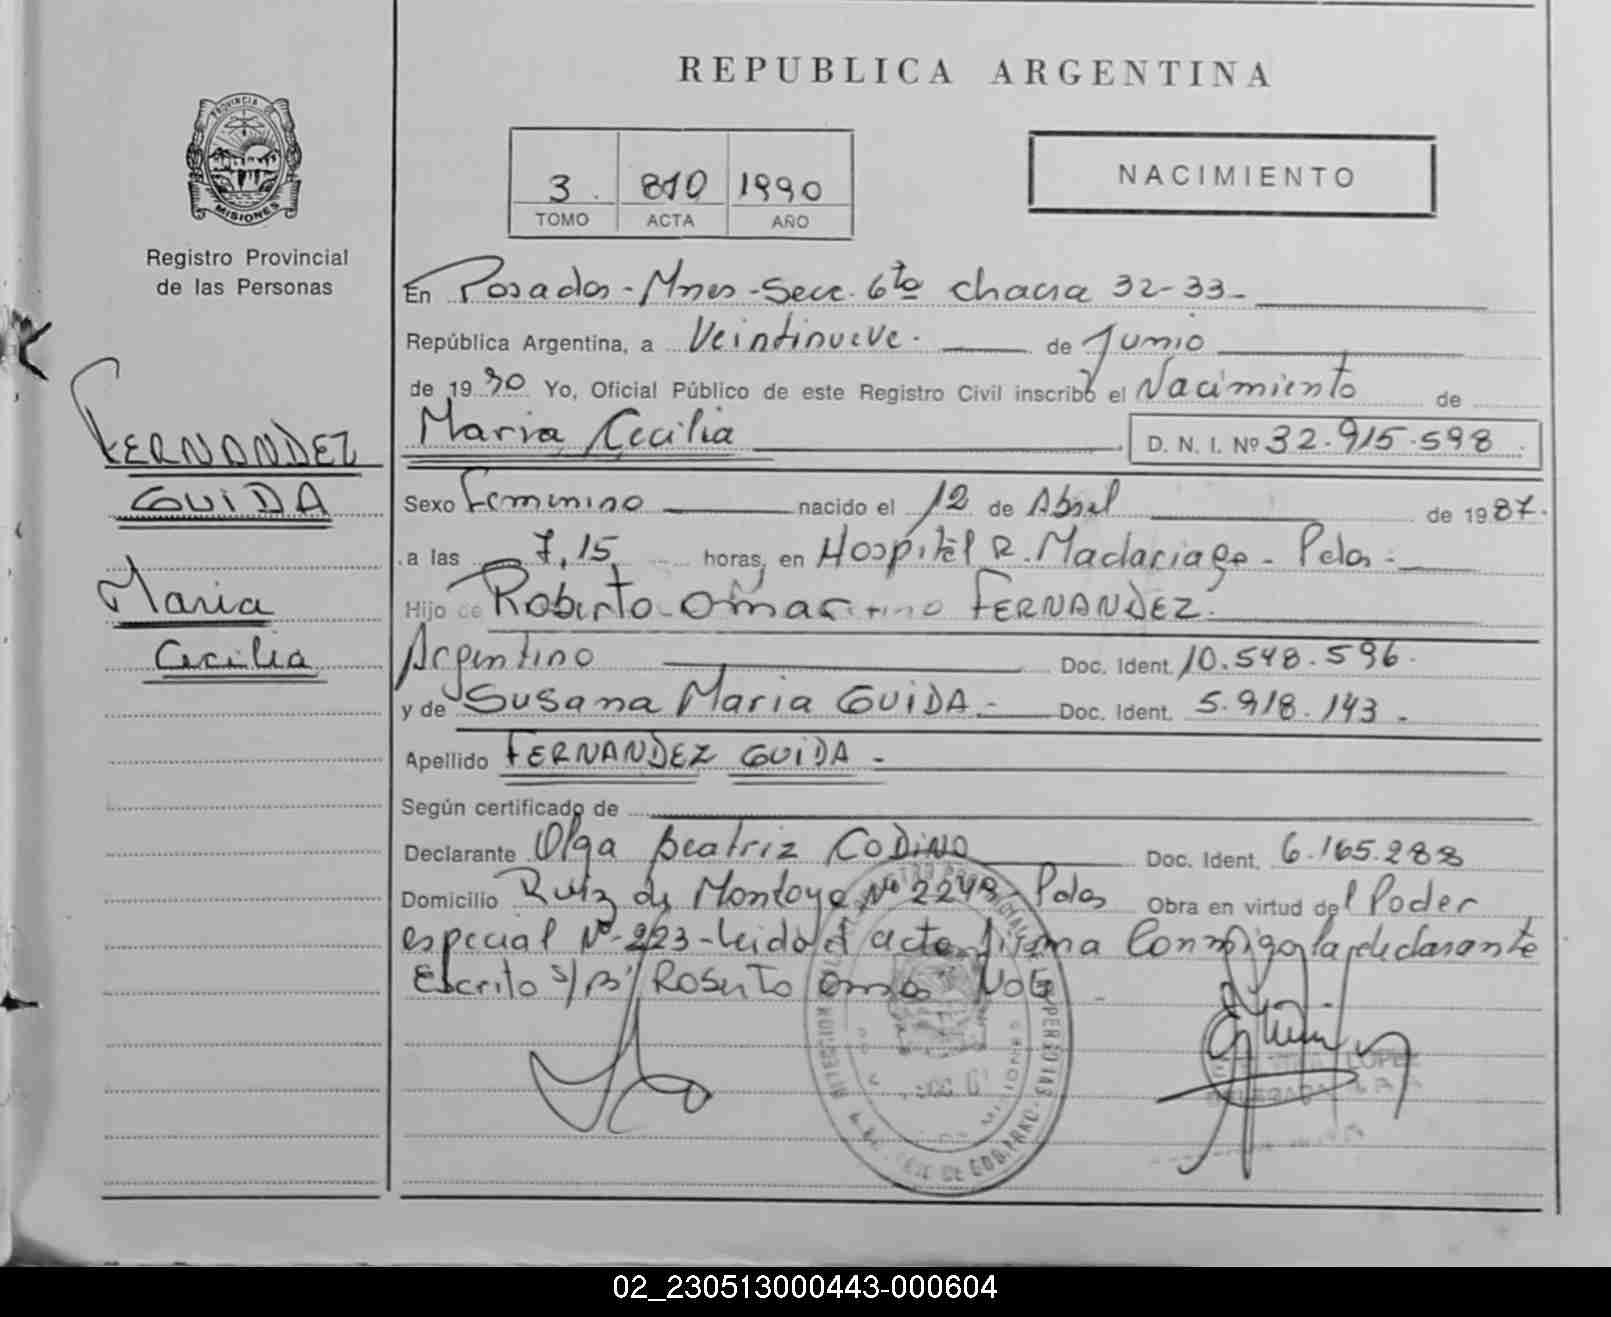 REPUBLICA ARGENTINA
PROVINCIA DE
MISIONES
Registro Provincial
de las Personas
3 810 1990
TOMO ACTA AÑO
NACIMIENTO
FERNANDEZ
GUIDA
Maria
Cecilia
En Posadas - Mnes - Secc. 6ta chacra 32-33-
República Argentina, a Veintinueve. de Junio
de 19 90 Yo, Oficial Público de este Registro Civil inscribo el Nacimiento de
Maria Cecilia D. N. I. Nº 32.915.598
Sexo Femenino nacido el 12 de Abril de 1987.
a las 7,15 horas, en Hospital R. Madariaga - Pdas -
Hijo de Roberto Omar FERNANDEZ.
Argentino Doc. Ident. 10.548.596.
y de Susana Maria GUIDA - Doc. Ident. 5.918.143 -
Apellido FERNANDEZ GUIDA -
Según certificado de
Declarante Olga Beatriz CODINO Doc. Ident. 6.165.288
Domicilio Ruiz de Montoya Nº 2248 - Pdas Obra en virtud del Poder
especial Nº 223 - Leido el acta firma Conmigo la declarante
Escrito s/ Roberto Omar Vale
LOPEZ
02_230513000443-000604